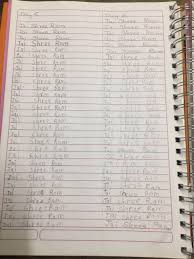 Day
Jai Shree Ram
Jai Shree Ram
Jai Shree Ram
Jai Shree Ram
Jai Shree Ram
Jai Shree Ram
Jai Shree Ram
Jai Shree Ram
Jai Shree Ram
Jai Shree Ram
Jai Shree Ram
Jai Shree Ram
Jai Shree Ram
Jai Shree Ram
Jai Shree Ram
Jai Shree Ram
Jai Shree Ram
Jai Shree Ram
Jai Shree Ram
Jai Shree Ram
Jai Shree Ram
Jai Shree Ram
Jai Shree Ram
Jai Shree Ram
Jai Shree Ram
Jai Shree Ram
Jai Shree Ram
Jai Shree Ram
Jai Shree Ram
Jai Shree Ram
Jai Shree Ram
Jai Shree Ram
Jai Shree Ram
Jai Shree Ram
Jai Shree Ram
Jai Shree Ram
Jai Shree Ram
Jai Shree Ram
Jai Shree Ram
Jai Shree Ram
Jai Shree Ram
Jai Shree Ram
Jai Shree Ram
Jai Shree Ram
Jai Shree Ram
Jai Shree Ram
Jai Shree Ram
Jai Shree Ram
Jai Shree Ram
Jai Shree Ram